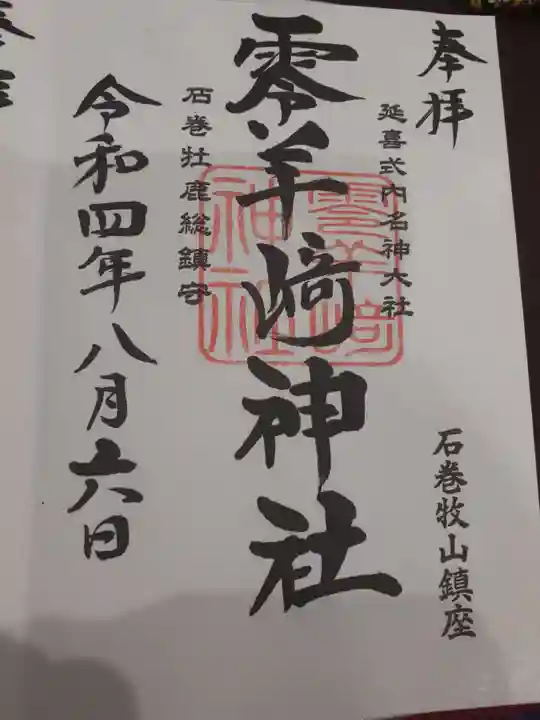 奉拝
石巻牧山鎮座
延喜式内名神大社
零羊﨑神社
零羊﨑
神社
石巻牡鹿総鎮守
令和四年八月六日